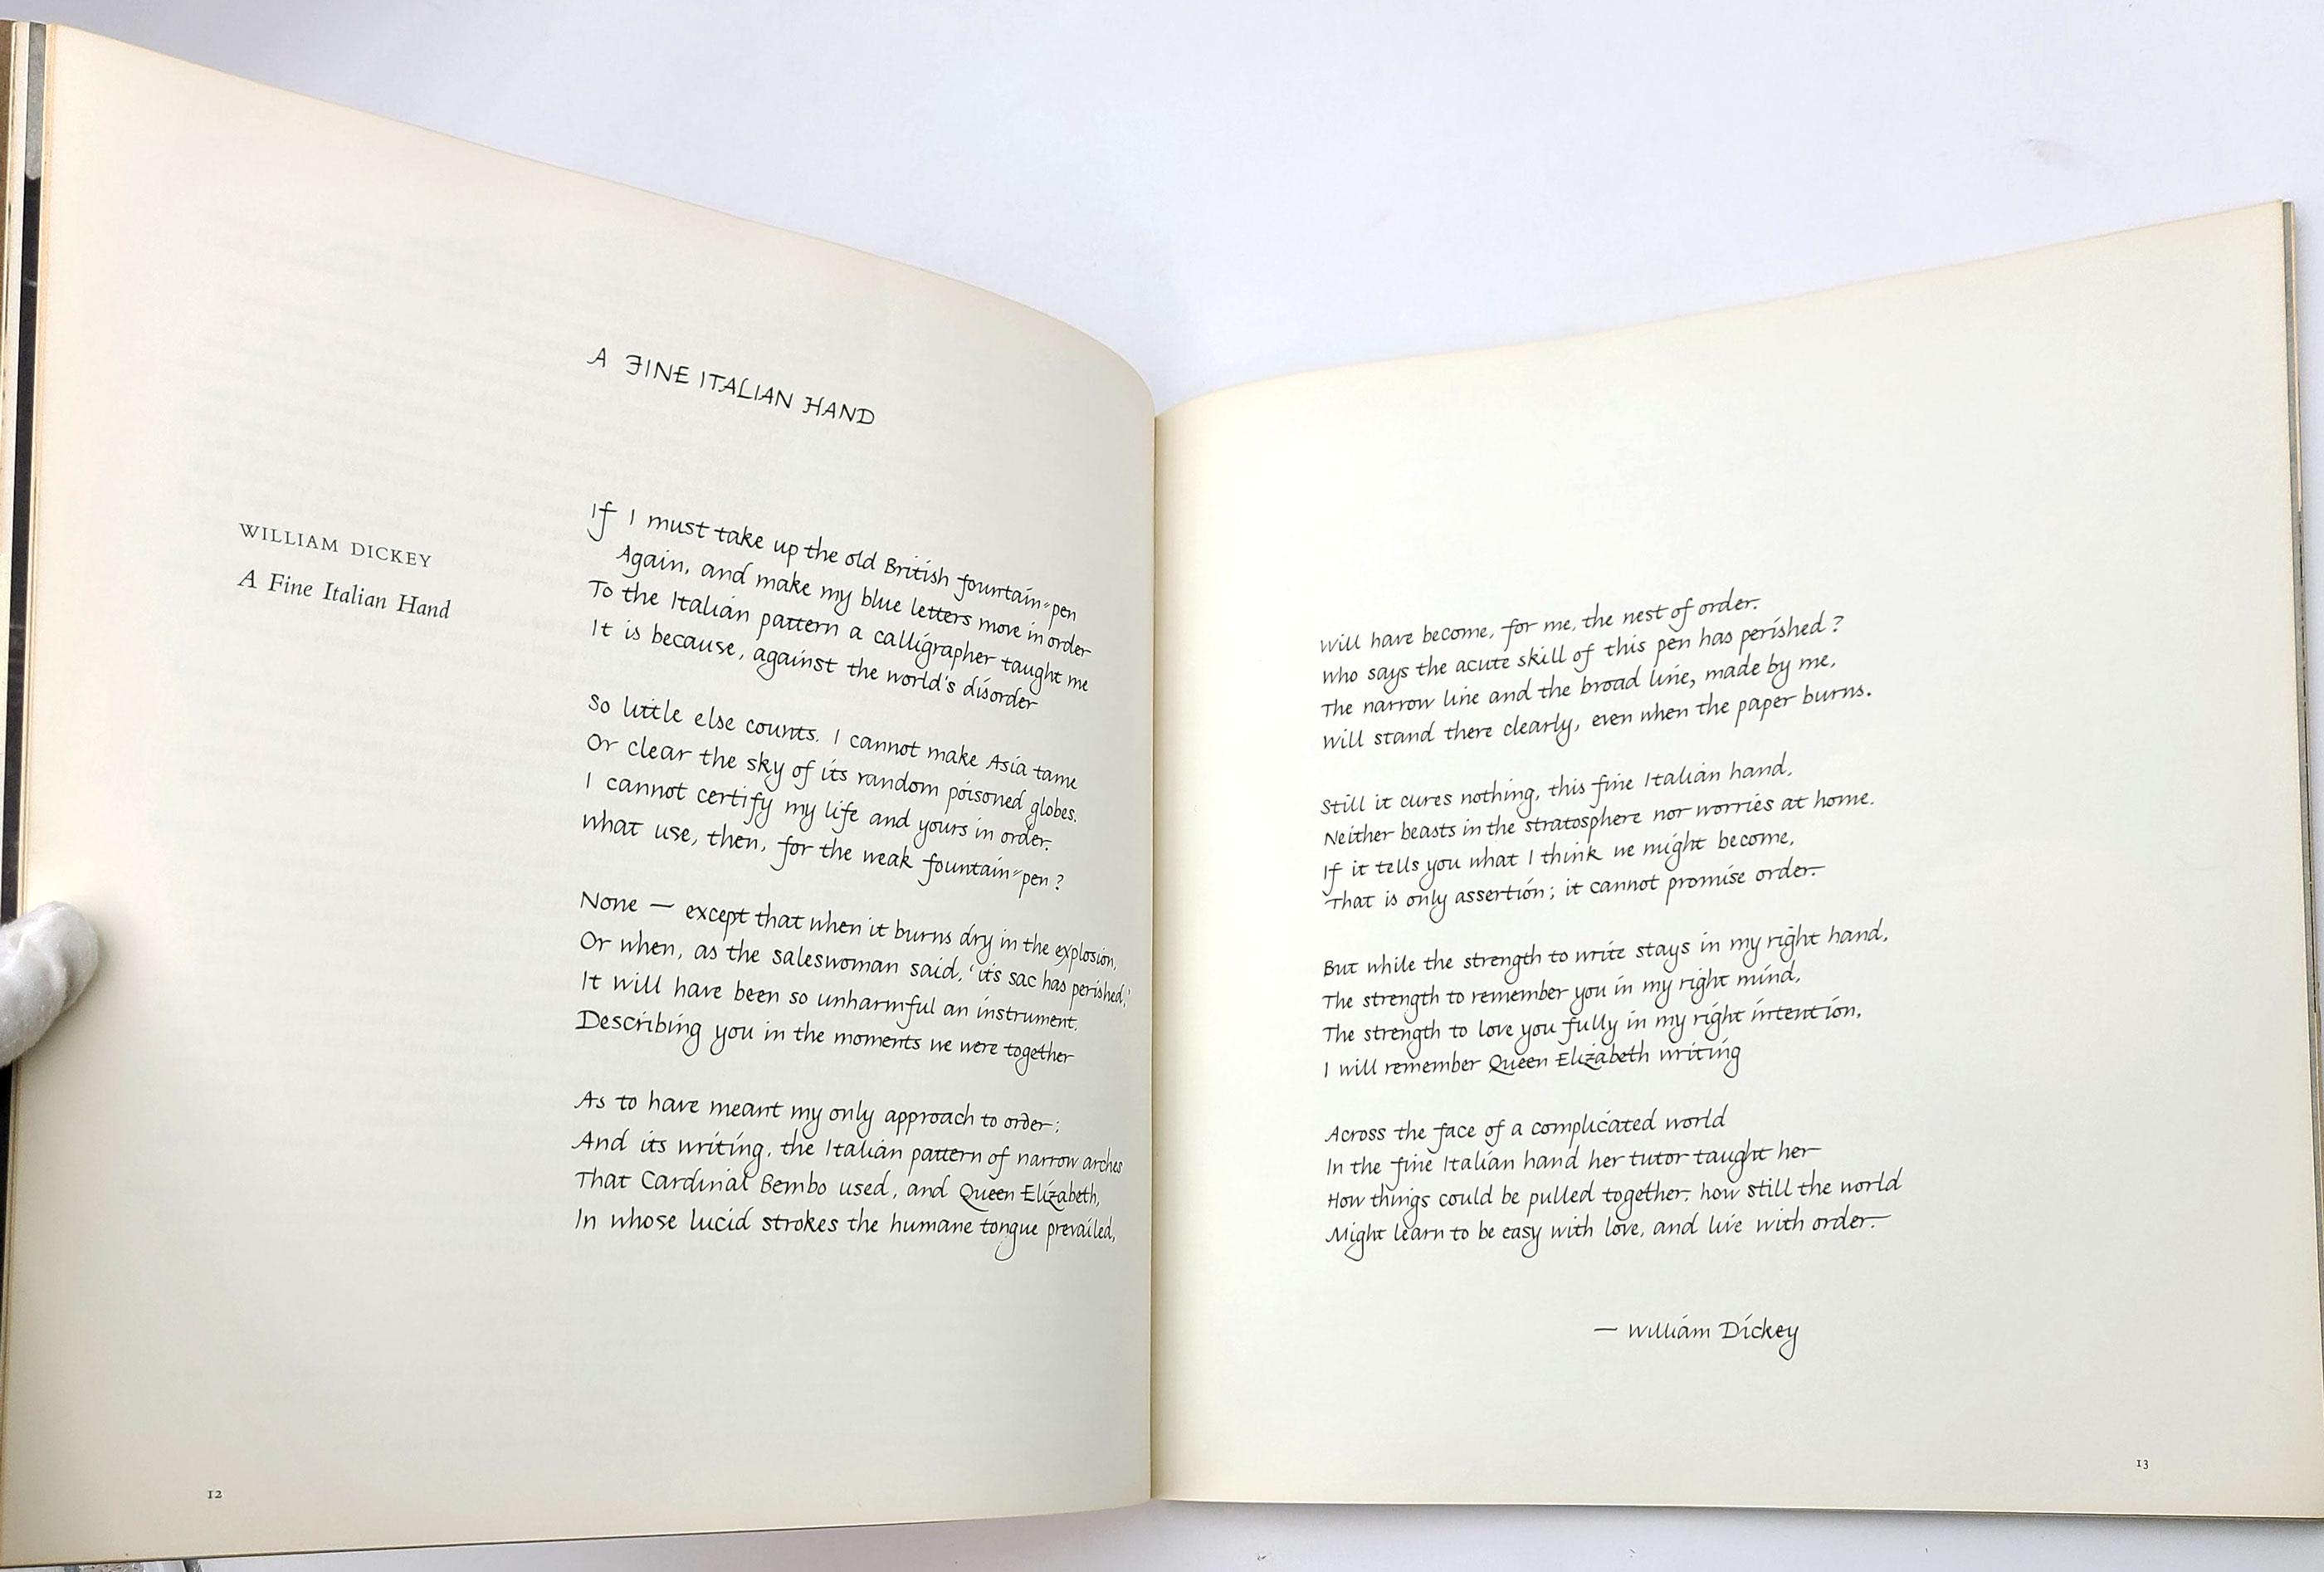 A FINE ITALIAN HAND
WILLIAM DICKEY
A Fine Italian Hand
If I must take up the old British fountain=pen
Again, and make my blue letters move in order
To the Italian pattern a calligrapher taught me
It is because, against the world's disorder
So little else counts. I cannot make Asia tame
Or clear the sky of its random poisoned globes.
I cannot certify my life and yours in order.
What use, then, for the weak fountain=pen?
None — except that when it burns dry in the explosion,
Or when, as the saleswoman said, 'its sac has perished,'
It will have been so unharmful an instrument,
Describing you in the moments we were together
As to have meant my only approach to order;
And its writing, the Italian pattern of narrow arches
That Cardinal Bembo used, and Queen Elizabeth,
In whose lucid strokes the humane tongue prevailed,
12
Will have become, for me, the nest of order.
Who says the acute skill of this pen has perished?
The narrow line and the broad line, made by me,
Will stand there clearly, even when the paper burns.
Still it cures nothing, this fine Italian hand,
Neither beasts in the stratosphere nor worries at home.
If it tells you what I think we might become,
That is only assertion; it cannot promise order.
But while the strength to write stays in my right hand,
The strength to remember you in my right mind,
The strength to love you fully in my right intention,
I will remember Queen Elizabeth writing
Across the face of a complicated world
In the fine Italian hand her tutor taught her
How things could be pulled together, how still the world
Might learn to be easy with love, and live with order.
— William Dickey
13